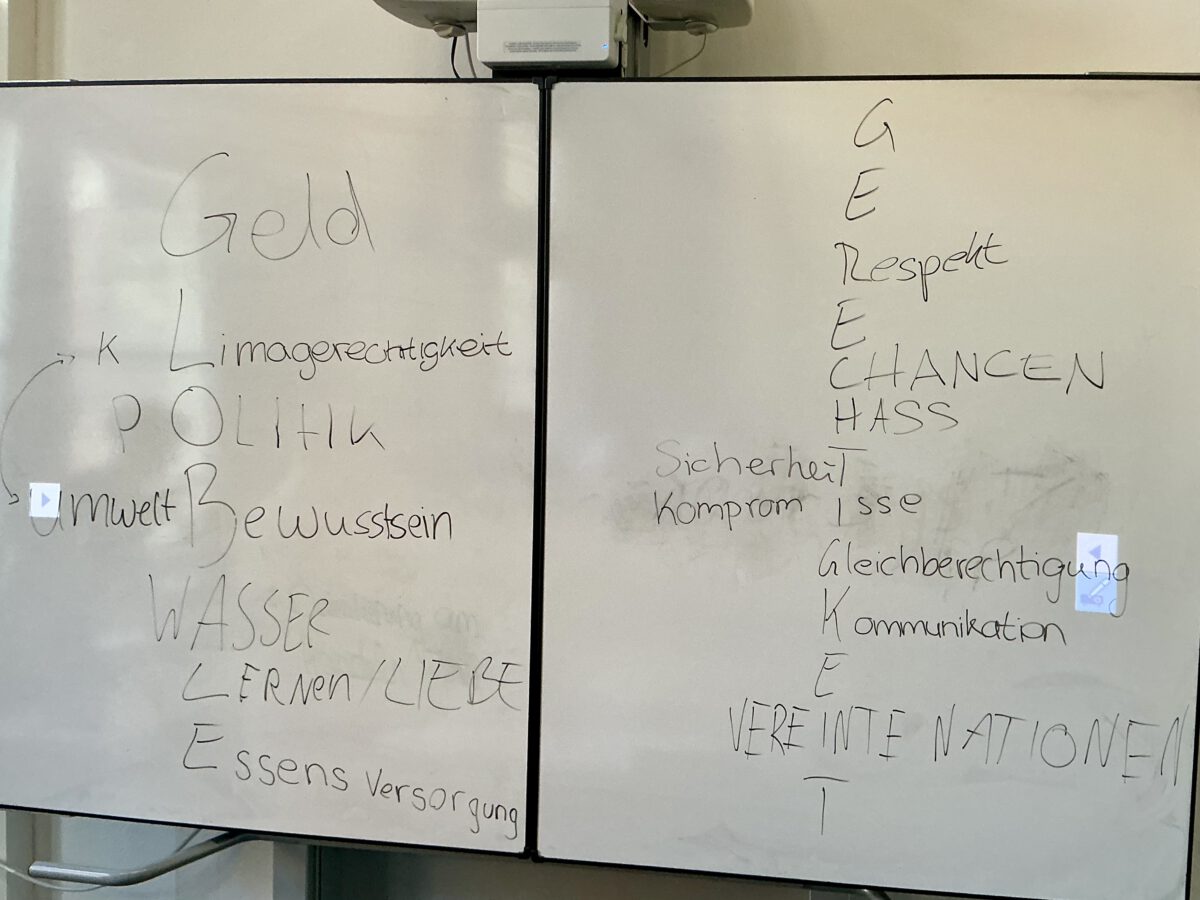 Geld
K Limagerechtigkeit
POLITIK
Umwelt Bewusstsein
WASSER
LERNEN/LIEBE
Essens Versorgung
G
E
Respekt
E
CHANCEN
HASS
SicherheiT
Kompromisse
Gleichberechtigung
Kommunikation
E
VEREINTE NATIONEN
T